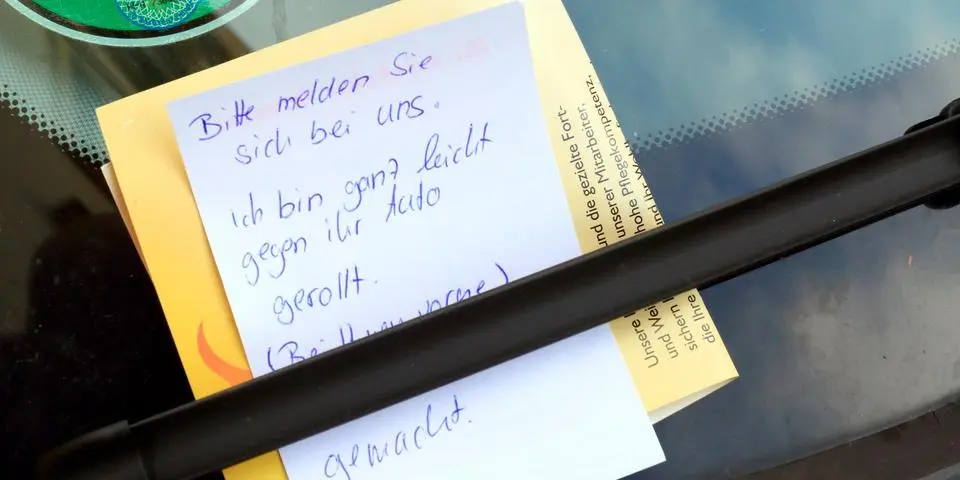 Bitte melden Sie
sich bei uns.
ich bin ganz leicht
gegen ihr Auto
gerollt.
vorne)
gemacht.
und die gezielte Fort-
unserer Mitarbeiter,
hohe Pflegekompetenz,
und Ihr
Unsere
und Wei
sichern
die Ihre